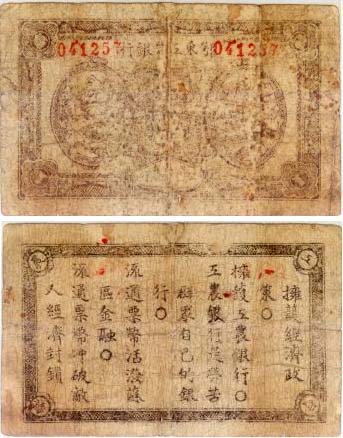 041257
041257
擁護經濟政
策○
擁護工農銀行○
工農銀行是勞苦
群眾自己的銀
行○
流通票幣活潑蘇
區金融○
流通票幣冲破敵
人經濟封鎖